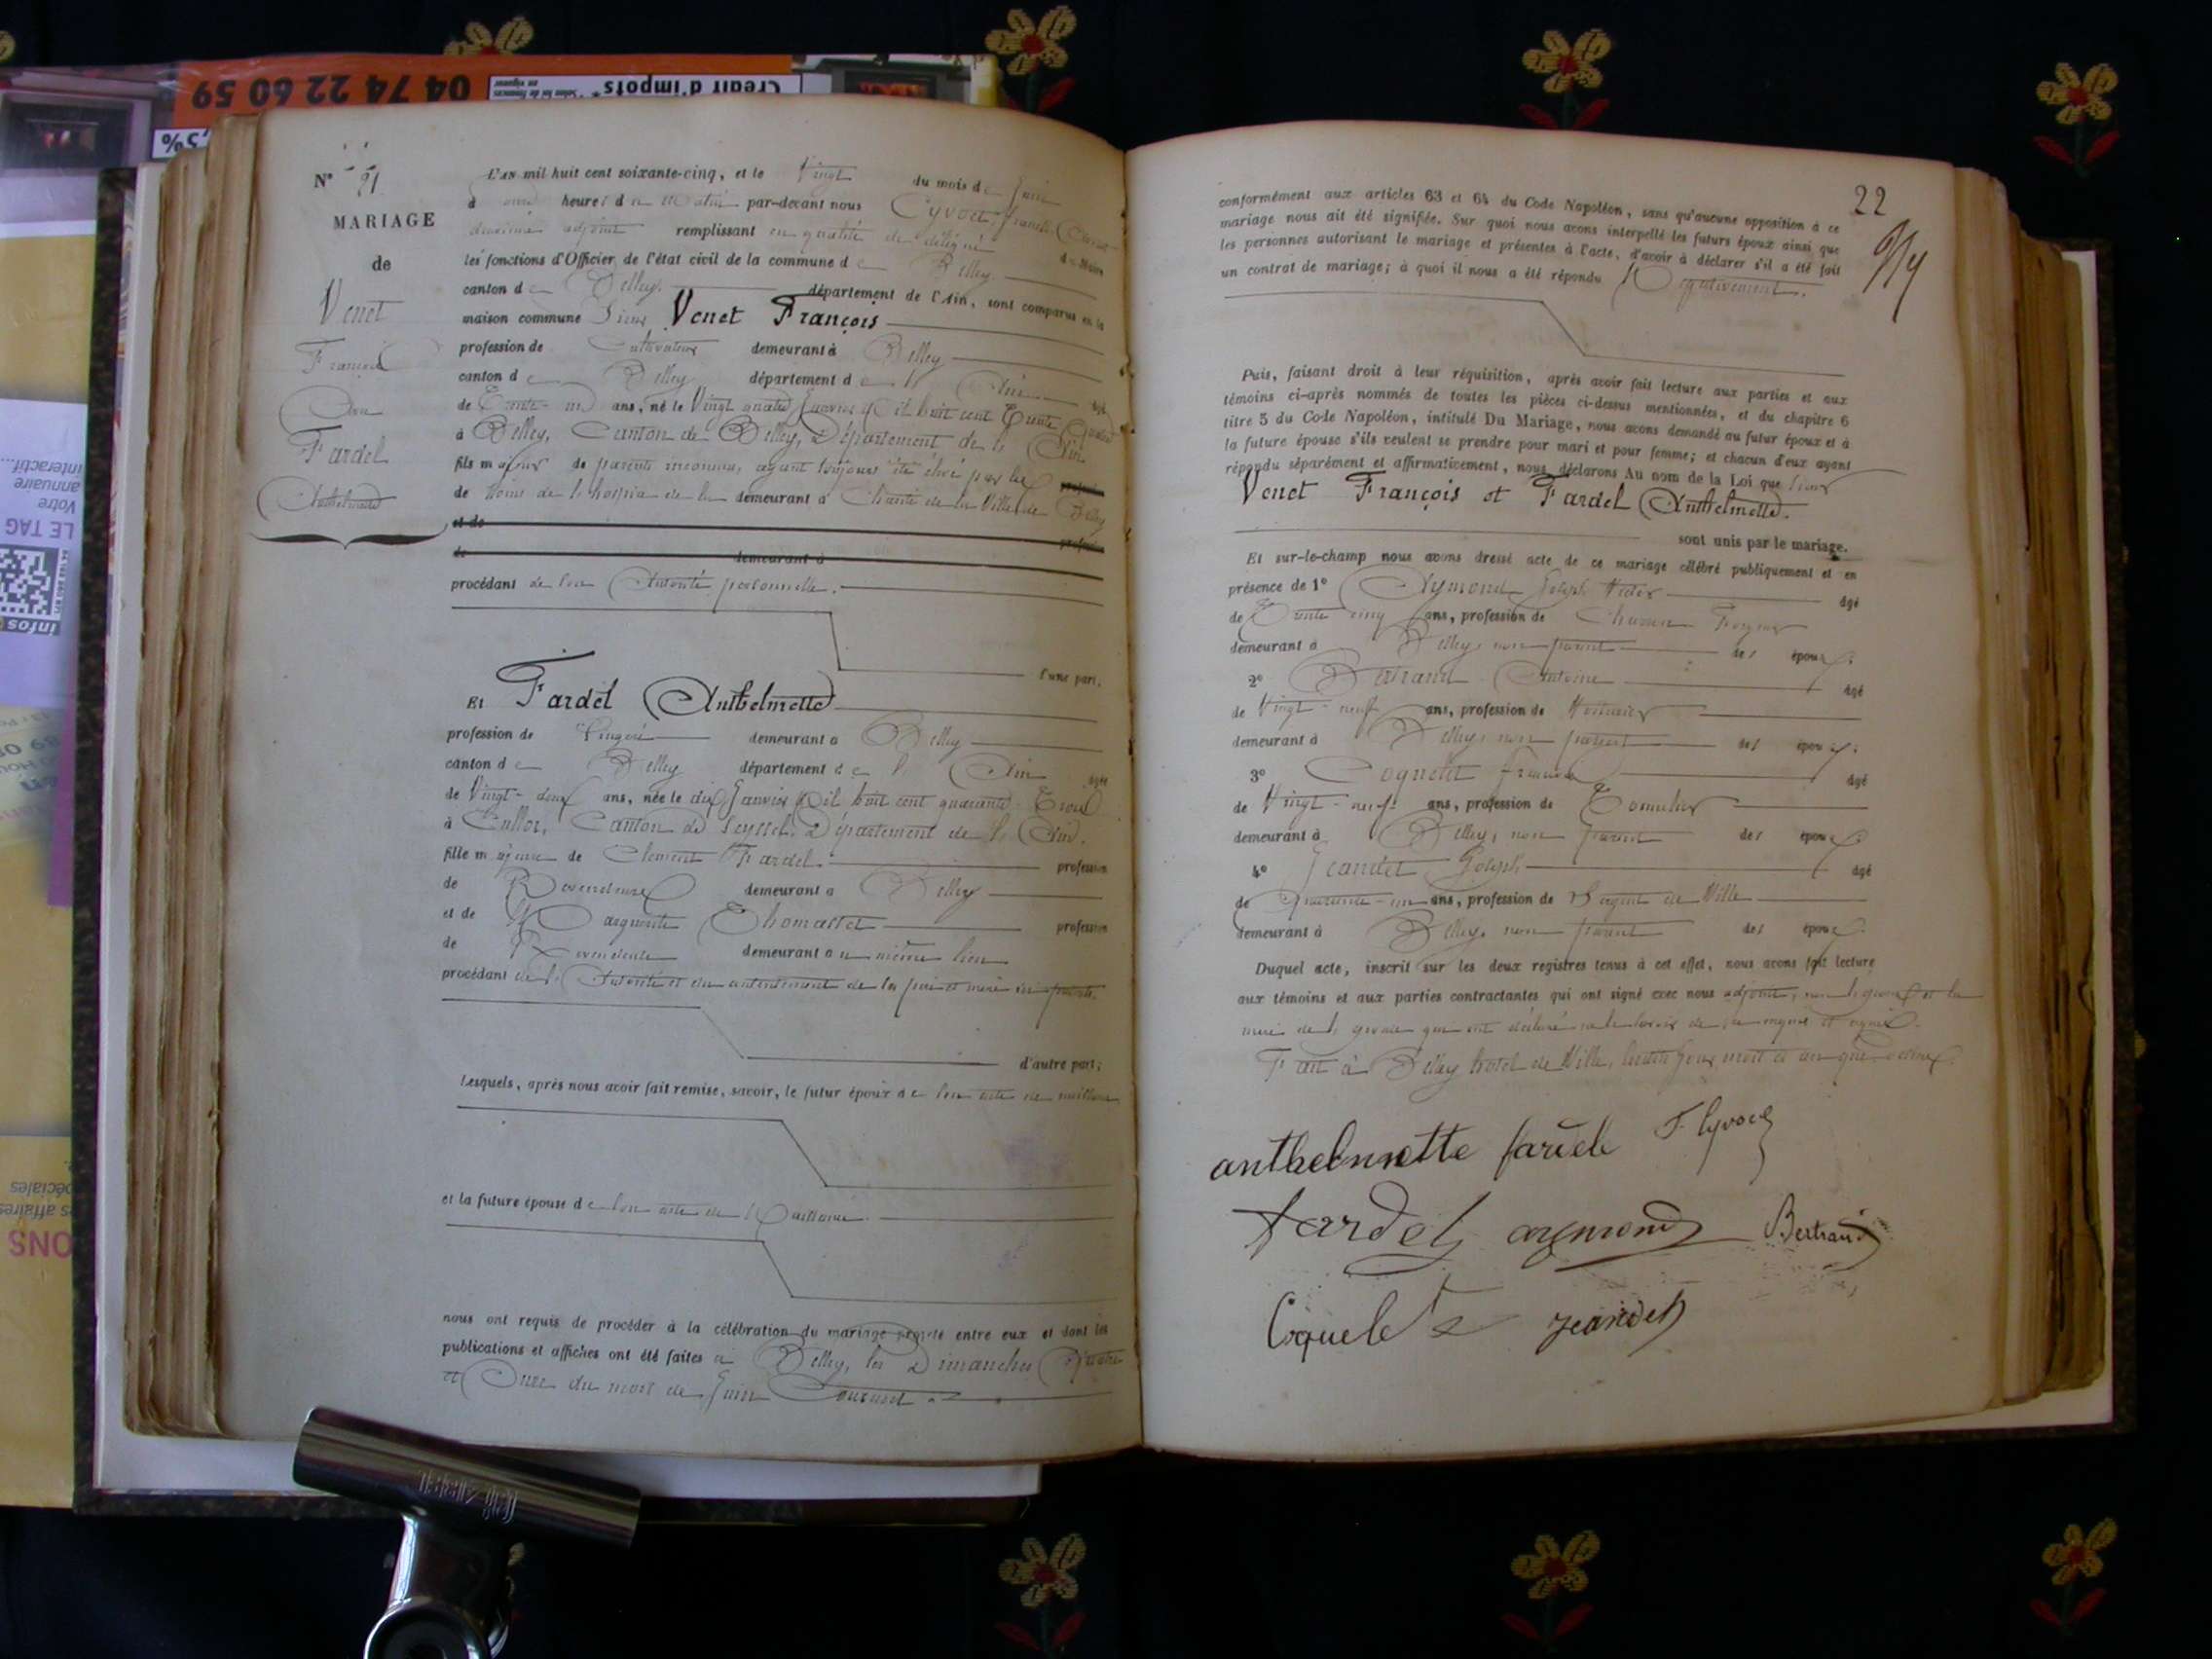 04 74 22 60 59
Crédit d'impôts*
* Selon loi de finances
en vigueur
,5%
interactif...
annuaire
Votre
LE TAG
infos
péciales
s affaires
ONS
N° 21
MARIAGE
de
Venet
François
Fardel
Anthelmette
L'AN mil huit cent soixante-cinq, et le Vingt du mois de Juin
à onze heures du Matin par-devant nous Cyvoct, francois
deuxième adjoint remplissant en qualité de délégué du Maire
les fonctions d'Officier de l'état civil de la commune de Belley
canton de Belley. département de l'Ain, sont comparus en la
maison commune Sieur Venet François
profession de Cultivateur demeurant à Belley
canton de Belley département de l'Ain âgé
de Trente-un ans, né le Vingt quatre Janvier Mil huit cent Trente Quatre
à Belley, Canton de Belley, Département de l'Ain
fils majeur de parents inconnus, ayant toujours été élevé par les profession
de soins de l'hospice de la demeurant à Charité de la Ville de Belley
et de profession
de demeurant à
procédant de son Autorité personnelle.
l'une part.
Et Fardel Anthelmette
profession de Lingère demeurant à Belley
canton de Belley département de l'Ain âgée
de Vingt-deux ans, née le dix Janvier Mil huit cent quarante-Trois
à Culloz, Canton de Seyssel, Département de l'Ain.
fille majeure de Clement Fardel. profession
de Revendeur demeurant à Belley
et de Marguerite Thomasset profession
de Revendeuse demeurant à u même lieu
procédant de l'Autorité et du consentement de ses père et mère ici présents.
d'autre part;
Lesquels, après nous avoir fait remise, savoir, le futur époux de son acte de naissance
et la future épouse de son acte de Naissance.
nous ont requis de procéder à la célébration du mariage projeté entre eux et dont les
publications et affiches ont été faites à Belley, les Dimanches Quatre
et Onze du mois de Juin Courant
22
conformément aux articles 63 et 64 du Code Napoléon, sans qu'aucune opposition à ce
mariage nous ait été signifiée. Sur quoi nous avons interpellé les futurs époux ainsi que
les personnes autorisant le mariage et présentes à l'acte, d'avoir à déclarer s'il a été fait
un contrat de mariage; à quoi il nous a été répondu Négativement.
Puis, faisant droit à leur réquisition, après avoir fait lecture aux parties et aux
témoins ci-après nommés de toutes les pièces ci-dessus mentionnées, et du chapitre 6
titre 5 du Code Napoléon, intitulé Du Mariage, nous avons demandé au futur époux et à
la future épouse s'ils veulent se prendre pour mari et pour femme; et chacun d'eux ayant
répondu séparément et affirmativement, nous déclarons Au nom de la Loi que Sieur
Venet François et Fardel Anthelmette.
sont unis par le mariage.
Et sur-le-champ nous avons dressé acte de ce mariage célébré publiquement et en
présence de 1° Aymond Joseph Victor âgé
de Trente cinq ans, profession de
demeurant à Belley, non parent des époux;
2° Bertrand Antoine âgé
de Vingt-neuf ans, profession de Voiturier
demeurant à Belley, non parent des époux;
3° Coquelet francois âgé
de Vingt-neuf ans, profession de Tonnelier
demeurant à Belley, non parent des époux;
4° Jeandet Joseph âgé
de Quarante-un ans, profession de Sergent de Ville
demeurant à Belley, non parent des époux.
Duquel acte, inscrit sur les deux registres tenus à cet effet, nous avons fait lecture
aux témoins et aux parties contractantes qui ont signé avec nous adjoint, non l'époux et la
mère de l'épouse qui ont déclaré ne le savoir de ce enquis et requis.
Fait à Belley hotel de Ville, lesdits Jour, mois et an que dessus.
anthelmette fardele F Cyvoct
fardel aymond Bertrand
Coquelet jeandet